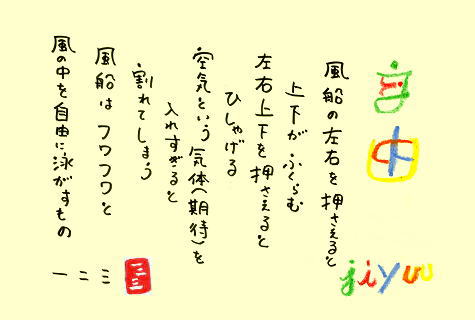 自由
jiyuu
風船の左右を押さえると
上下がふくらむ
左右上下を押さえると
ひしゃげる
空気という気体(期待)を
入れすぎると
割れてしまう
風船はフワフワと
風の中を自由に泳がすもの
一二三